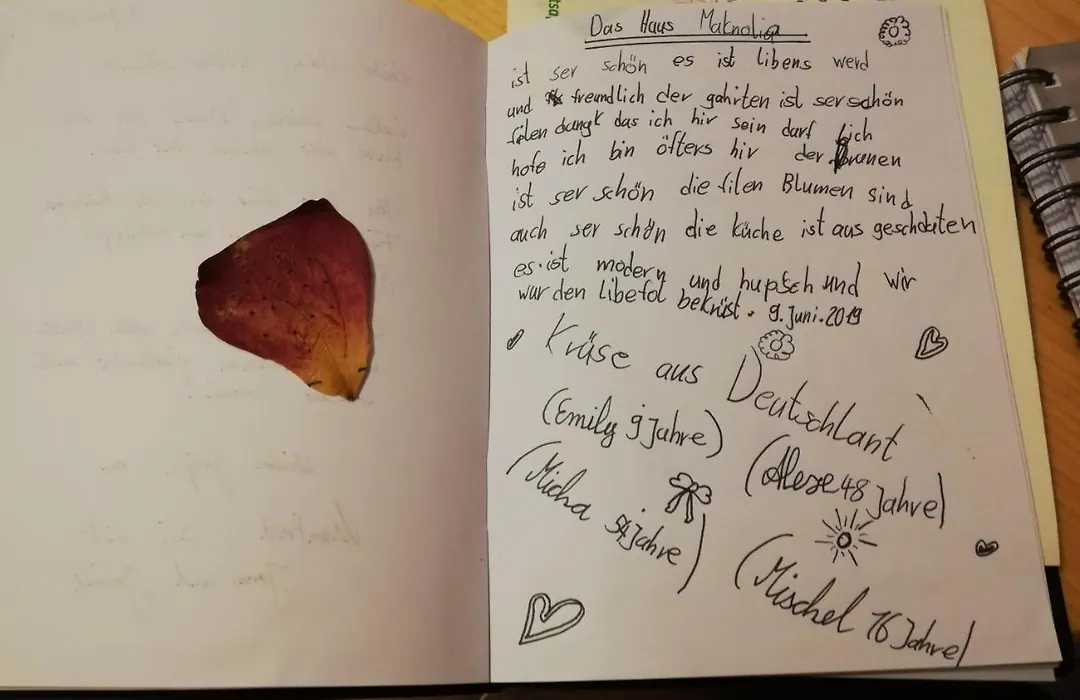 Das Haus Maknolia
ist ser schön es ist libens werd
und freundlich der gahrten ist ser schön
filen dangk das ich hir sein darf ich
hofe ich bin öfters hir der brunen
ist ser schön die filen Blumen sind
auch ser schön die küche ist aus geschdaten
es ist modern und hupsch und wir
wurden libefol beknüst. 9. Juni. 2019
Krüse aus Deutschlant
(Emily 9 Jahre)
(Alexe 48 Jahre)
(Micha 54 Jahre)
(Mischel 16 Jahre)